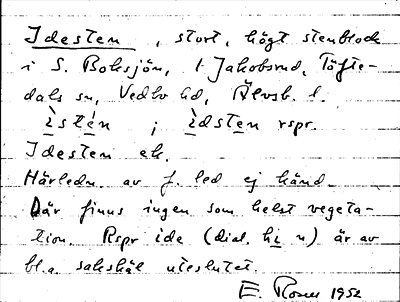 Idesten, stort, högt stenblock
i S. Boksjön, l Jakobsrud, Töfte-
dals sn, Vedbo hd, Älvsb. l.
ìstén ; ìdsten rspr.
Idesten ek.
Härledn. av f. led ej känd.
Där finns ingen som helst vegeta-
tion. Rspr ide (dial. hi n) är av
bl.a. sakskäl uteslutet.
E. 1952